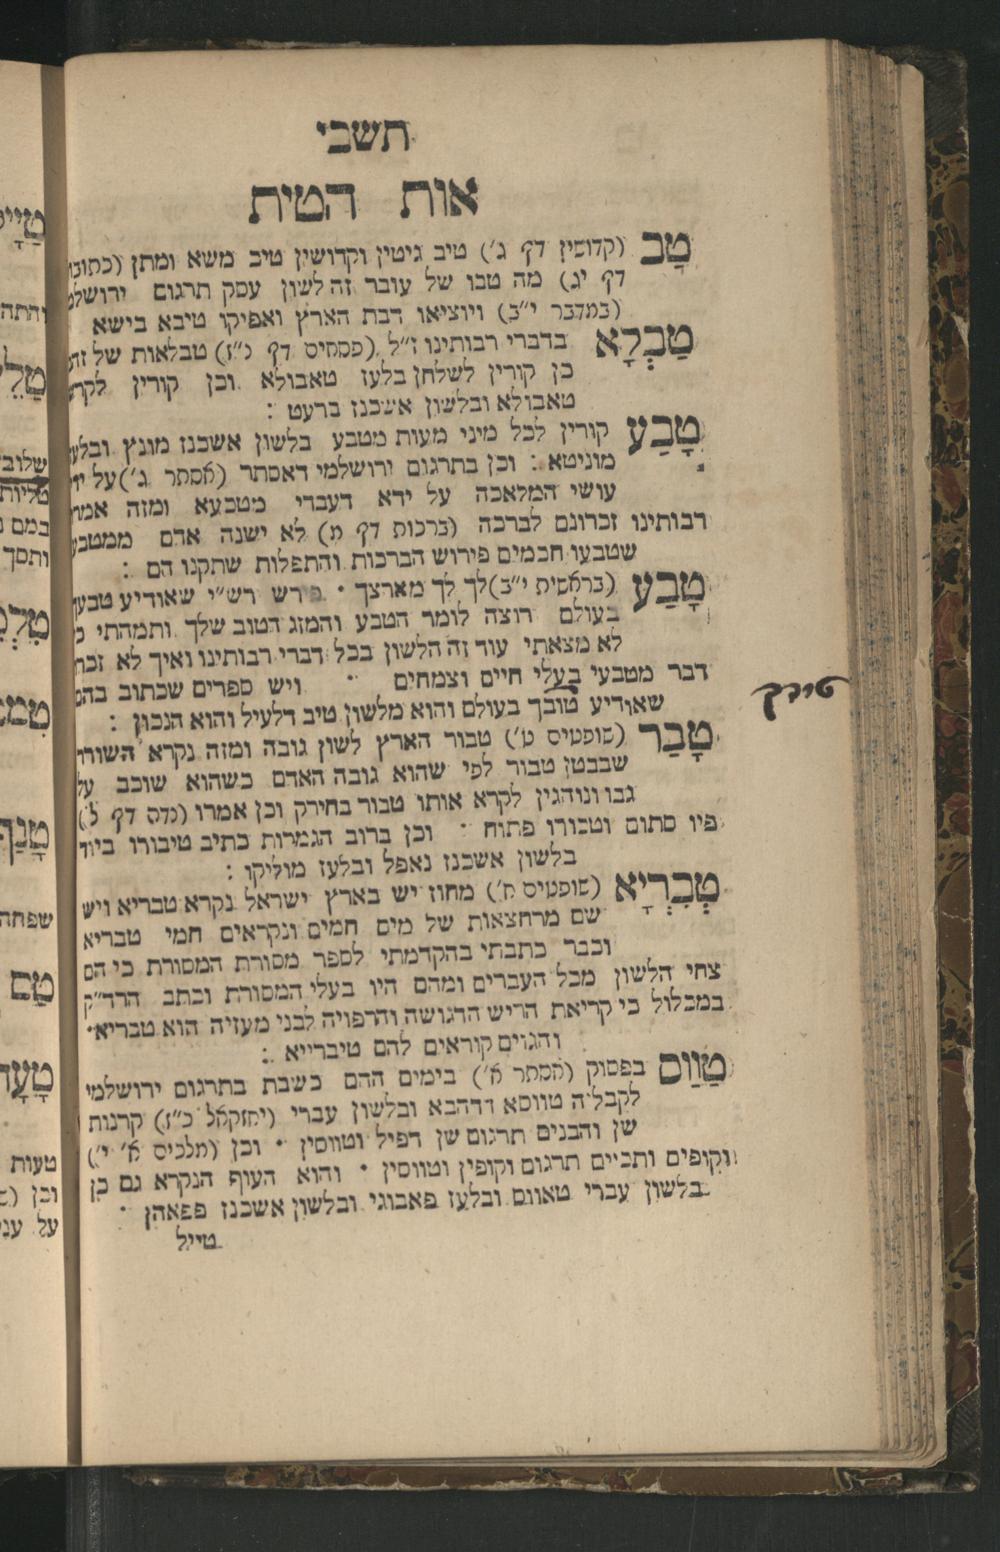 תשבי
אות הטית
טָב (קדושין דף ג') טיב גיטין וקדושין טיב משא ומתן
דף יג) מה טבו של עובר זה לשון עסק תרגום
(במדבר י"ב) ויוציאו דבת הארץ ואפיקו טיבא בישא
טַבְלָא בדברי רבותינו ז"ל (פסחים דף נ"ז) טבלאות של
כן קורין לשלחן בלעז טאבולא וכן קורין
טאבולא ובלשון אשכנז ברעט :
טָבַע קורין לכל מיני מעות מטבע בלשון אשכנז מונץ
מוניטא : וכן בתרגום ירושלמי דאסתר (אסתר ג') על
עושי המלאכה על ידא דעברי מטבעא ומזה
רבותינו זכרונם לברכה (ברכות דף מ) לא ישנה אדם
שטבעו חכמים פירוש הברכות והתפלות שתקנו הם :
טָבַע (בראשית י"ב) לך לך מארצך פירש רש"י שאודיע
בעולם רוצה לומר הטבע והמזג הטוב שלך ותמהתי
לא מצאתי עוד זה הלשון בכל דברי רבותינו ואיך לא
דבר מטבעי בעלי חיים וצמחים ויש ספרים שכתוב
שאודיע טובך בעולם והוא מלשון טיב דלעיל והוא הנכון :
טיבך
טָבַר (שופטים ט') טבור הארץ לשון גובה ומזה נקרא השורר
שבבטן טבור לפי שהוא גובה האדם כשהוא שוכב על
גבו ונוהגין לקרא אותו טבור בחירק וכן אמרו (נדה דף ל)
פיו סתום וטבורו פתוח : וכן ברוב הגמרות כתיב טיבורו ביוד
בלשון אשכנז נאפל ובלעז מוליקו :
טְבֶרְיָא (שופטים ח') מחוז יש בארץ ישראל נקרא טבריא ויש
שם מרחצאות של מים חמים ונקראים חמי טבריא
וכבר כתבתי בהקדמתי לספר מסורת המסורת כי הם
צחי הלשון מכל העברים ומהם היו בעלי המסורת וכתב הרד"ק
במכלול כי קריאת הריש הדגושה והרפויה לבני מעזיה הוא טבריא
והגוים קוראים להם טיברייא :
טַוַוס בפסוק (אסתר א') בימים ההם כשבת בתרגום ירושלמי
לקבליה טווסא דדהבא ובלשון עברי (יחזקאל כ"ז) קרנות
שן והבנים תרגום שן דפיל וטווסין וכן (מלכים א' י')
וקופים ותכיים תרגום וקופין וטווסין והוא העוף הנקרא גם כן
בלשון עברי טאווס ובלעז פאבוני ובלשון אשכנז פפאהן
טייל